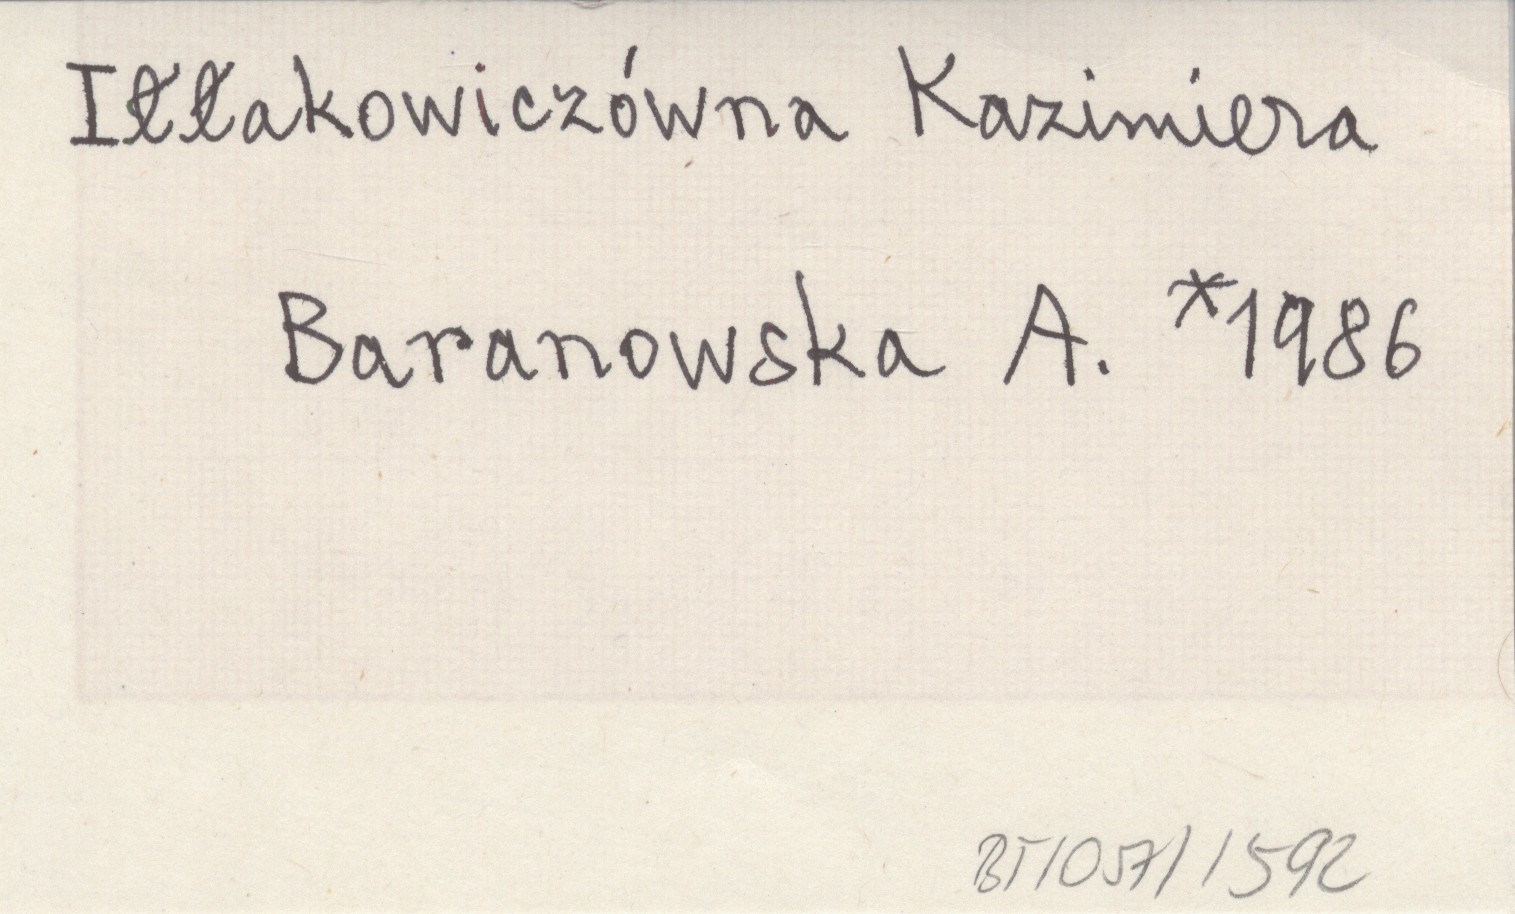 Iłłakowiczówna Kazimiera
Baranowska A. *1986
BT/057/1592